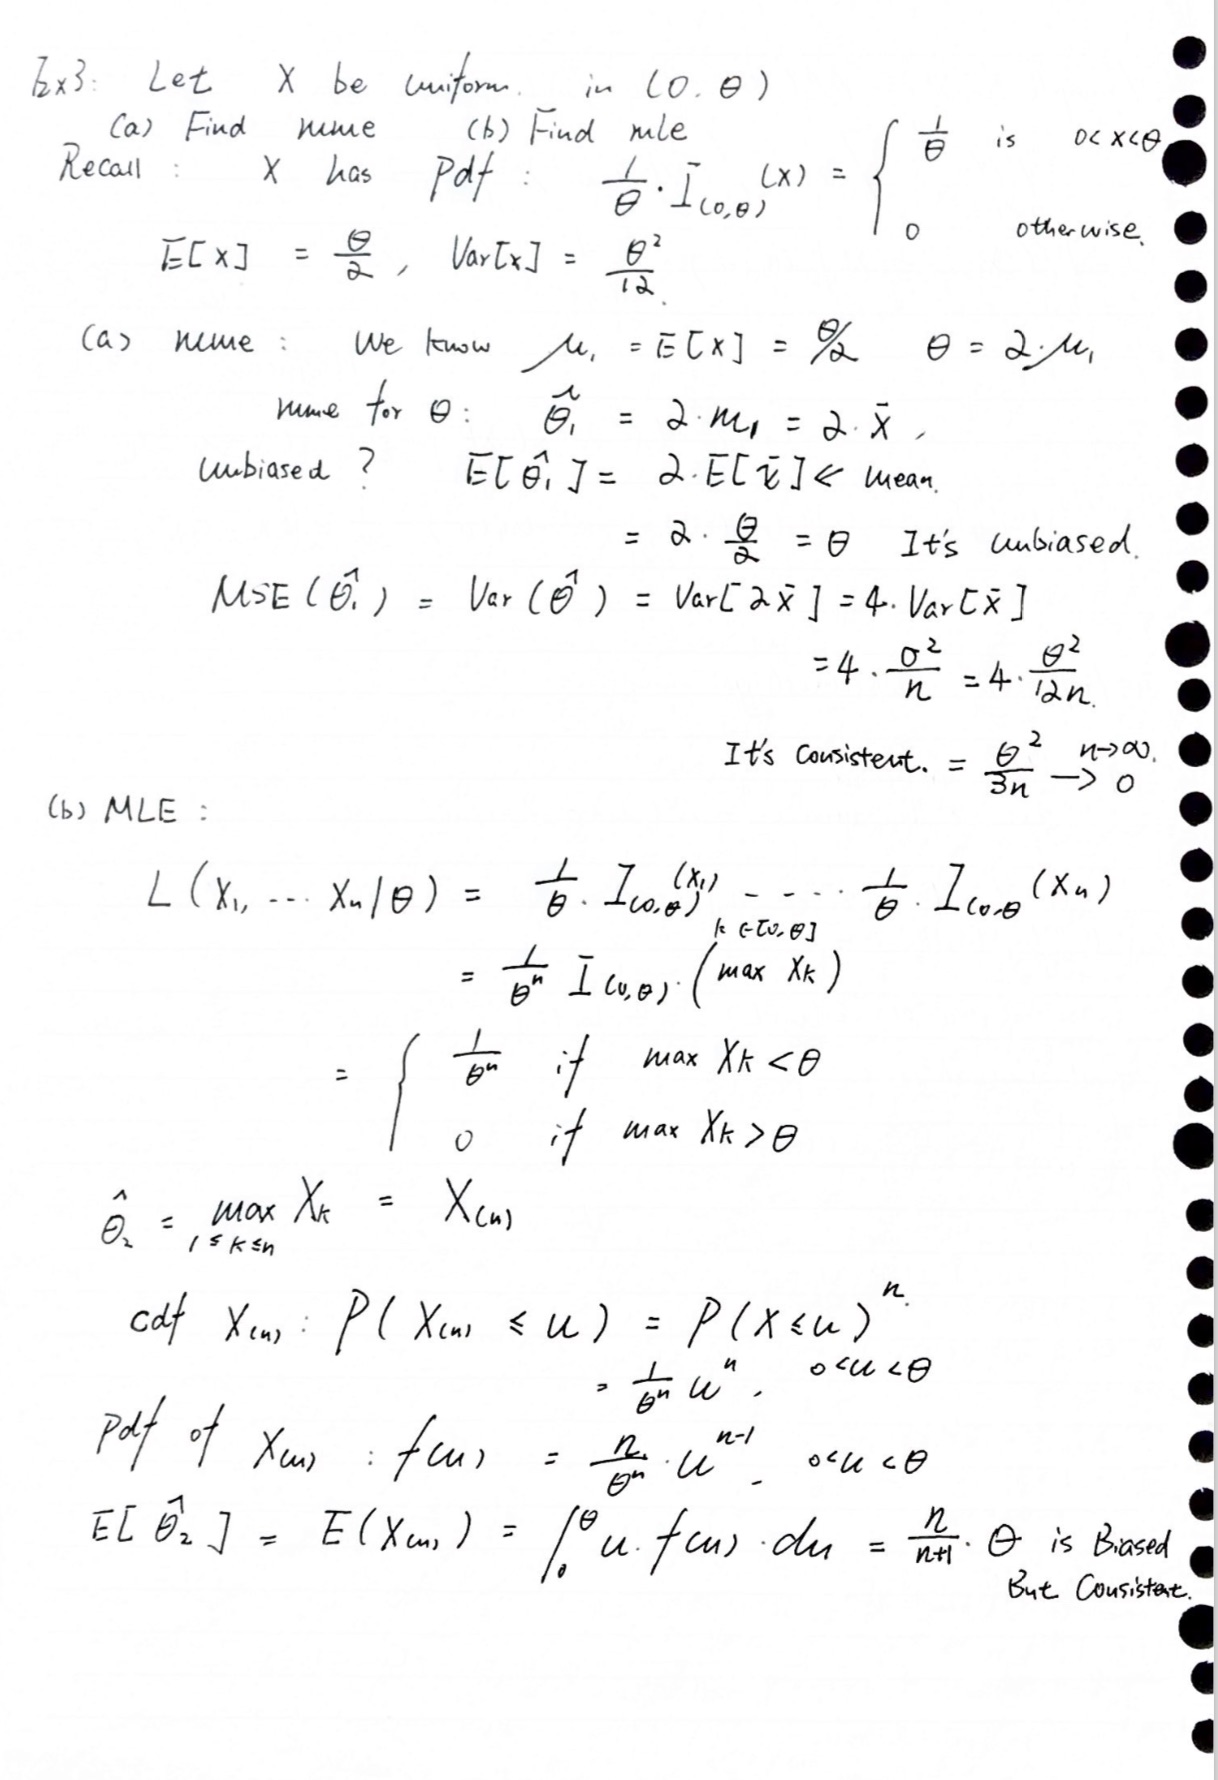 Ex3: Let X be uniform. in (0. θ)
(a) Find mme (b) Find mle
Recall : X has Pdf : 1/θ · I_(0,θ) (x) = { 1/θ is 0<x<θ
0 otherwise.
E[x] = θ/2 , Var[x] = θ²/12.
(a) mme : We know μ₁ = E[x] = θ/2 θ = 2·μ₁
mme for θ: θ̂₁ = 2·m₁ = 2·x̄ ,
unbiased ? E[θ̂₁] = 2·E[x̄] ← mean.
= 2 · θ/2 = θ It's unbiased.
MSE (θ̂₁) = Var (θ̂) = Var[2x̄] = 4. Var[x̄]
= 4 · σ²/n = 4 · θ²/12n.
It's Consistent. = θ²/3n → 0 n→∞.
(b) MLE :
L (X₁, ... Xn/θ) = 1/θ · I_(0,θ) (X₁) - - - - · 1/θ · I_(0,θ (Xn)
k ∈ [0, θ]
= 1/θⁿ I_(0,θ) · (max Xk)
= { 1/θⁿ if max Xk < θ
0 if max Xk > θ
θ̂₂ = max Xk = X(n)
1 ≤ k ≤ n
cdf X(n) : P( X(n) ≤ u ) = P(X ≤ u)ⁿ.
= 1/θⁿ uⁿ , 0<u<θ
Pdf of X(n) : f(u) = n/θⁿ · uⁿ⁻¹ 0<u<θ
E[θ̂₂] = E(X(n)) = ∫₀^θ u · f(u) · du = n/n+1 · θ is Biased
But Consistent.